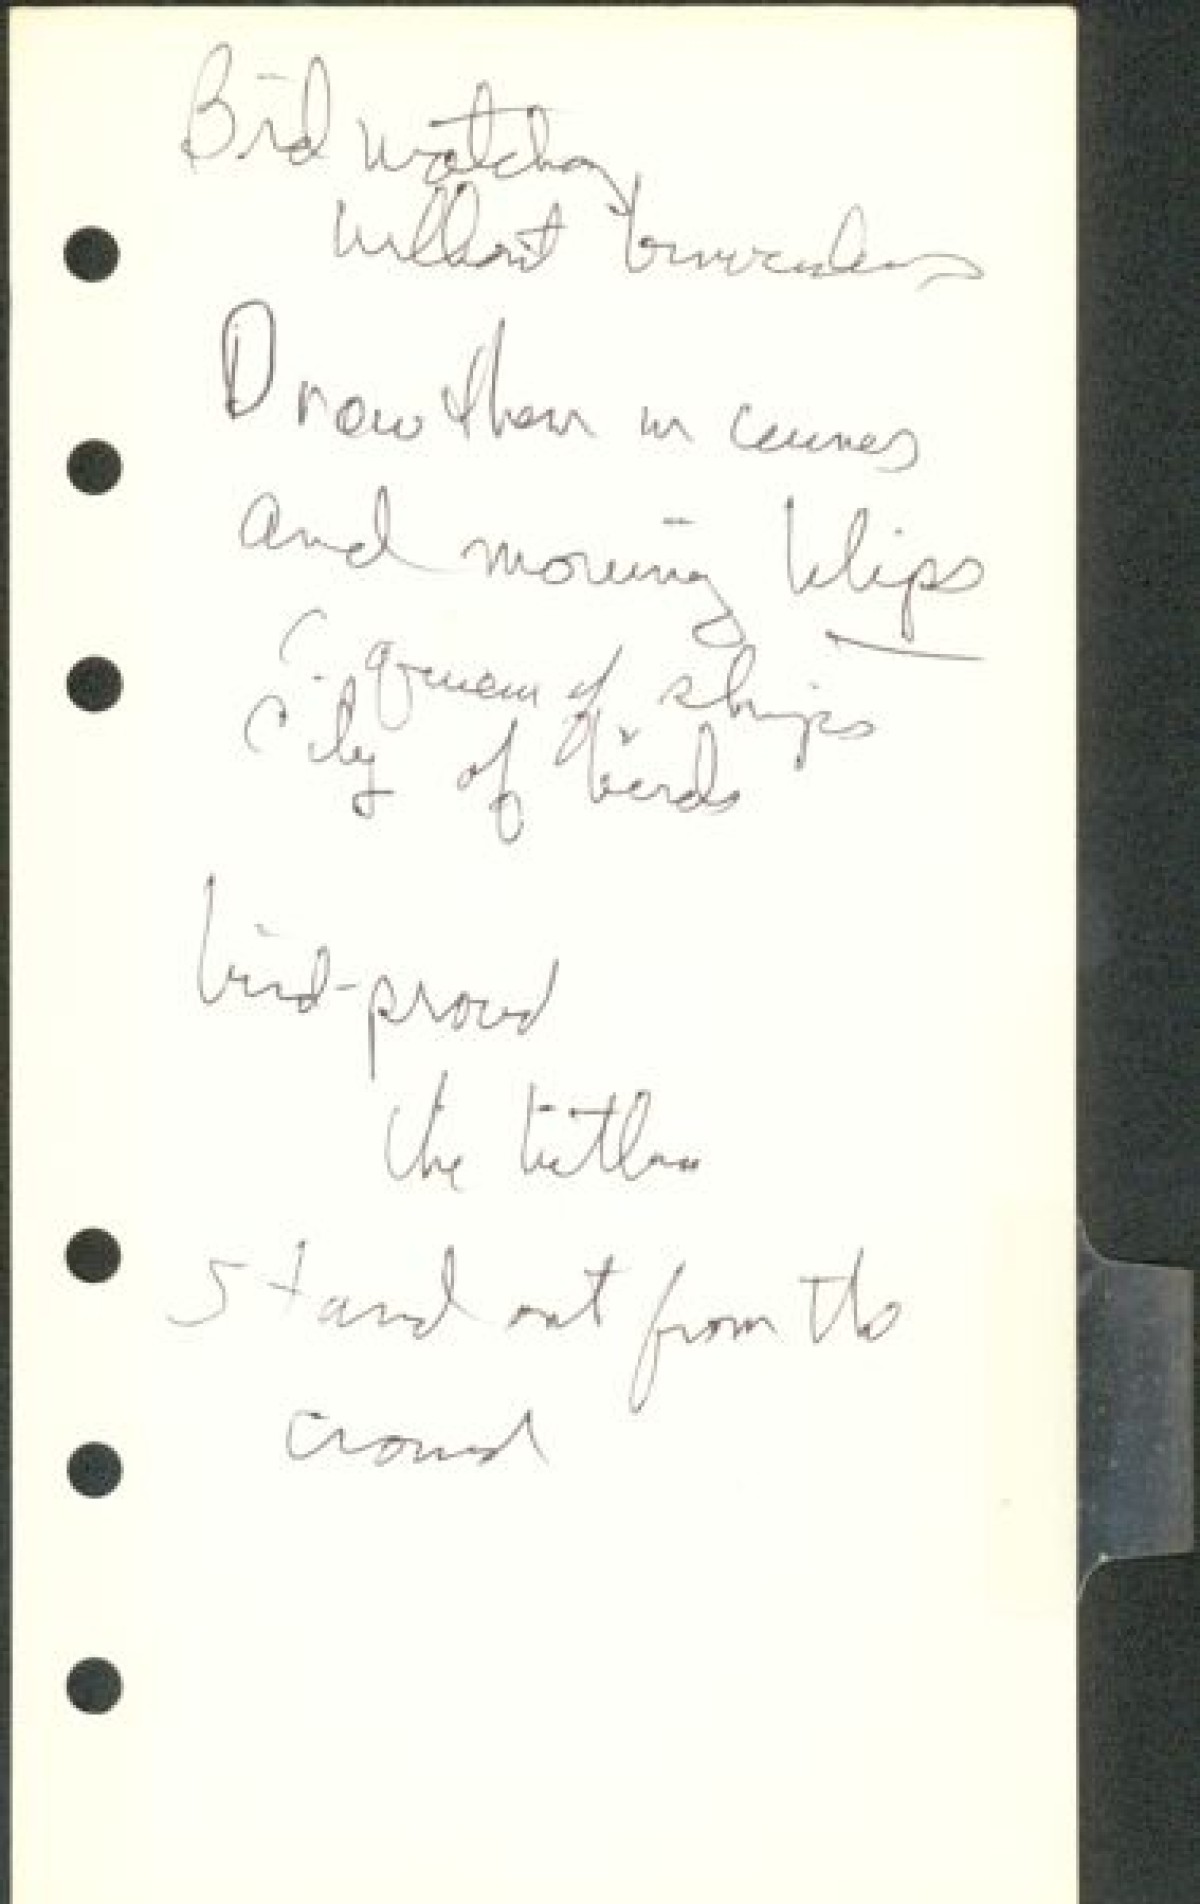 Bird watching
without binoculars
Draw them in curves
and moving blips
queen of ships
City of Birds
bird-proud
the
Stand out from the
crowd